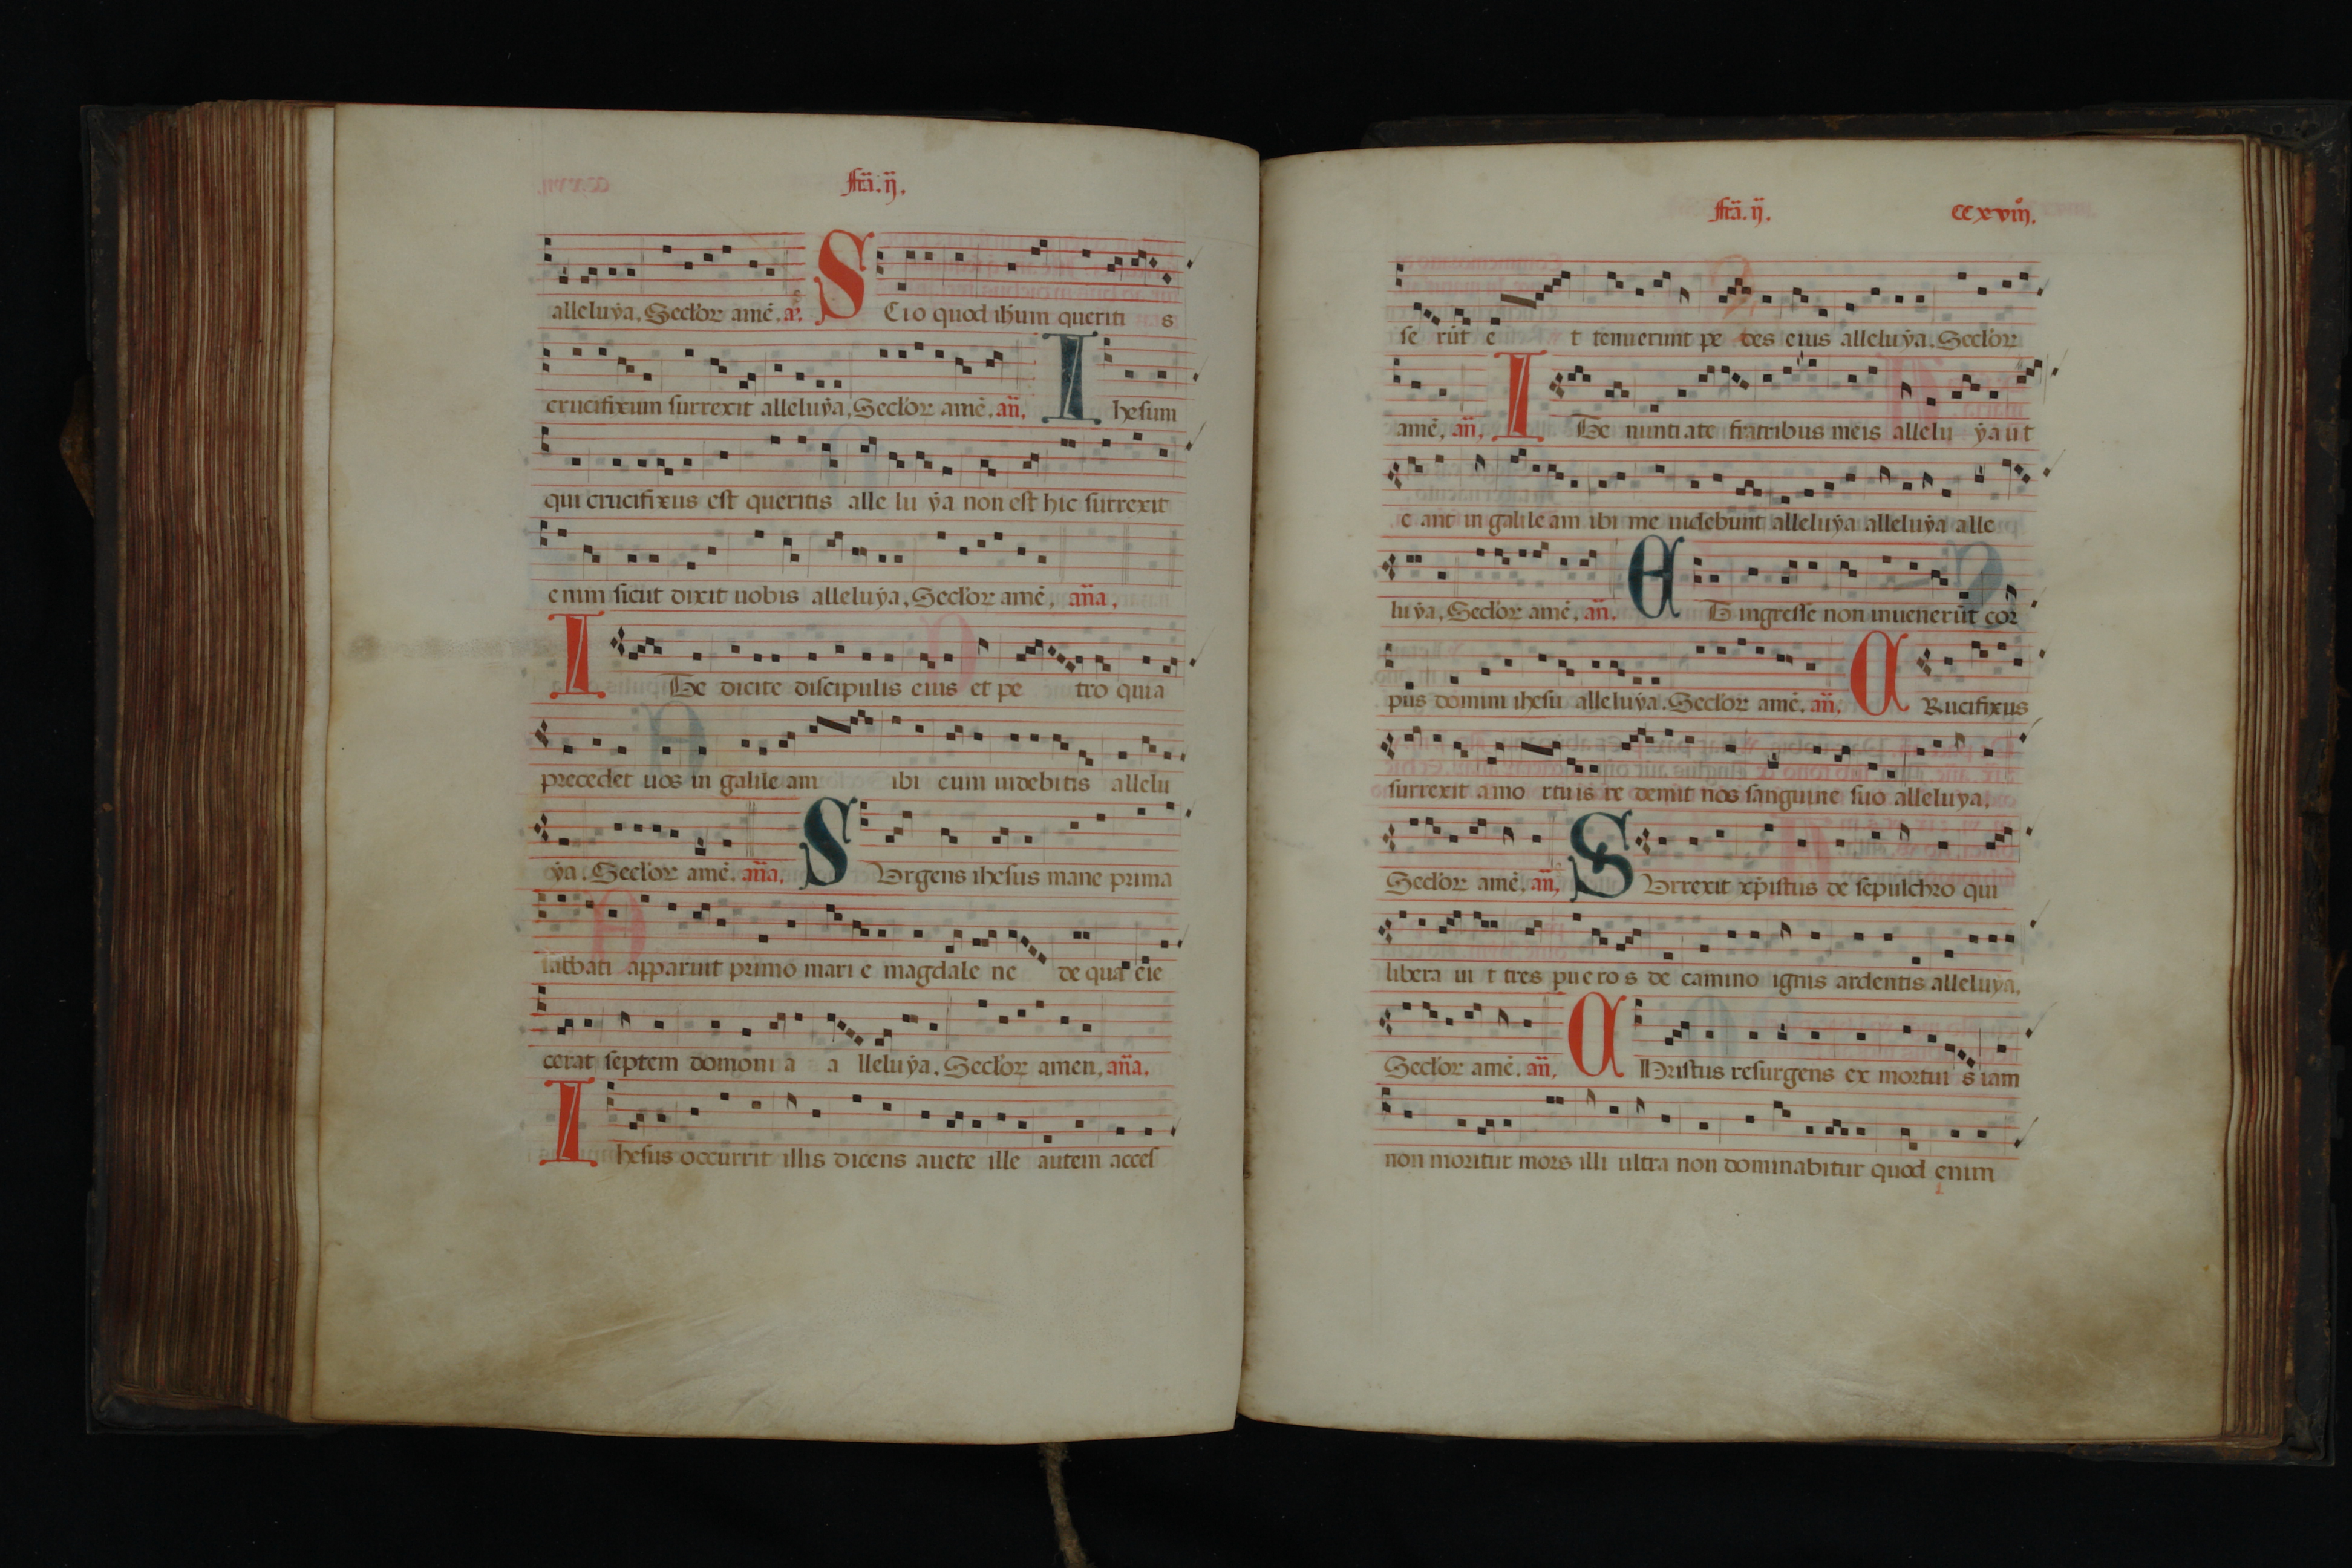 fr̄a. ij.
alleluẏa, Secľor amē. añ.
S Cio quod ihūm queriti s
crucifixum surrexit alleluẏa, Secľor amē. añ, I hesum
qui crucifixus est queritis alle lu ẏa non est hic surrexit
enim sicut dixit uobis alleluẏa, Secľor amē, aña,
I Te dicite discipulis eius et pe tro quia
precedet uos in galile am ibi eum uidebitis allelu
ẏa. Secľor amē. aña, S Urgens ihesus mane prima
sabbati apparuit primo mari e magdale ne de qua eie
cerat septem demoni a a lleluẏa. Secľor amen, aña,
I hesus occurrit illis dicens auete ille autem acces
fr̄a. ij. ccxviij.
se rūt e t tenuerunt pe des eius alleluẏa. Secľor
amē, añ, I Te nuntiate fratribus meis allelu ẏa ut
e ant in galile am ibi me uidebunt alleluẏa alleluẏa alle
lu ẏa, Secľor amē, añ. E T ingresse non inuenerūt cor
pus domini ihesu alleluẏa. Secľor amē, añ, C Rucifixus
surrexit a mo rtuis re demit nos sanguine suo alleluya,
Secľor amē, añ, S Urrexit xp̄istus de sepulchro qui
libera ui t tres pue ro s de camino ignis ardentis alleluẏa,
Secľor amē. añ, C Hristus resurgens ex mortui s iam
non moritur mors illi ultra non dominabitur quod enim